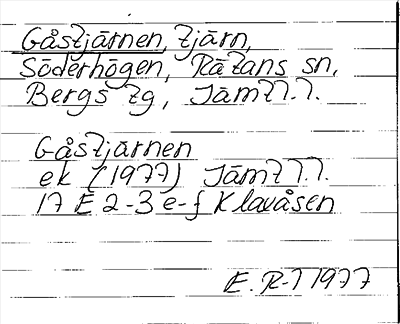 Gåstjärnen, tjärn,
Söderhögen, Rätans sn,
Bergs tg, Jämtl.l.
Gåstjärnen
ek (1977) Jämtl l.
17 E 2-3 e-f Klavåsen
E. R-l 1977